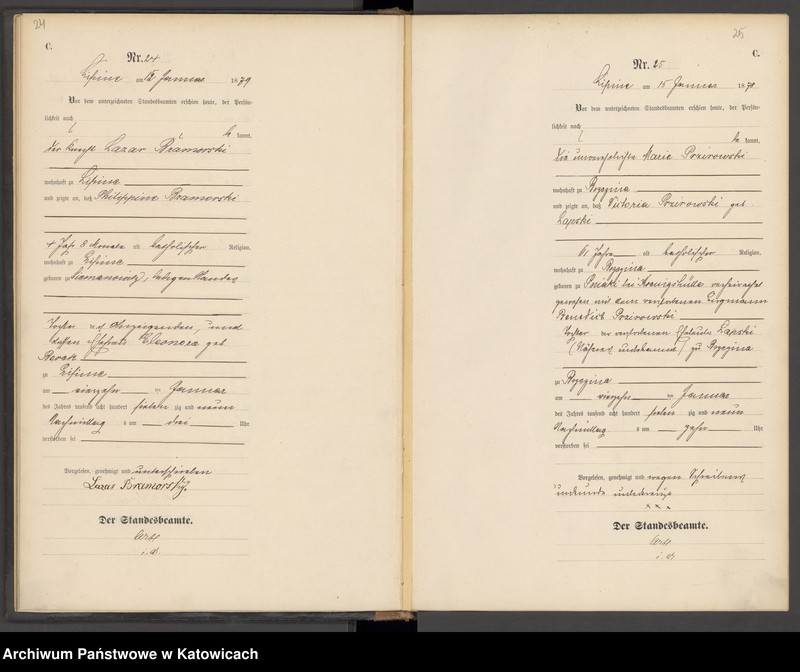 24
C.
Nr. 24
Lipine am 15 Januar 1879
Vor dem unterzeichneten Standesbeamten erschien heute, der Persön-
lichkeit nach
kannt,
der Lazar Bramorski
wohnhaft zu Lipine
und zeigte an, daß Philippine Bramorski
4 Jahr 8 Monate alt katholischer Religion,
wohnhaft zu Lipine
geboren zu ledigen Standes
Tochter des Anzeigenden, und
dessen Ehefrau Eleonora geb
zu Lipine
am vierzehn ten Januar
des Jahres tausend acht hundert siebenzig und neun
Nachmittag s um drei Uhr
verstorben sei
Vorgelesen, genehmigt und unterschrieben
Lazar Bramorski
Der Standesbeamte.
i. V.
25
C.
Nr. 25
Lipine am 15 Januar 1879
Vor dem unterzeichneten Standesbeamten erschien heute, der Persön-
lichkeit nach
kannt,
die unverehelichte Marie Przirowski
wohnhaft zu
und zeigte an, daß Victoria Przirowski geb
Lapski
61 Jahre alt katholischer Religion,
wohnhaft zu
geboren zu bei Koenigshütte verheirathet
gewesen mit dem verstorbenen Bergmann
Benedict Przirowski
Tochter der verstorbenen Eheleute Lapski
(Näheres unbekannt) zu
zu
am vierzehn ten Januar
des Jahres tausend acht hundert siebenzig und neun
Nachmittag s um zehn Uhr
verstorben sei
Vorgelesen, genehmigt und wegen Schreibens
unkunde unterkreuzt
x x x
Der Standesbeamte.
i. V.
Archiwum Państwowe w Katowicach